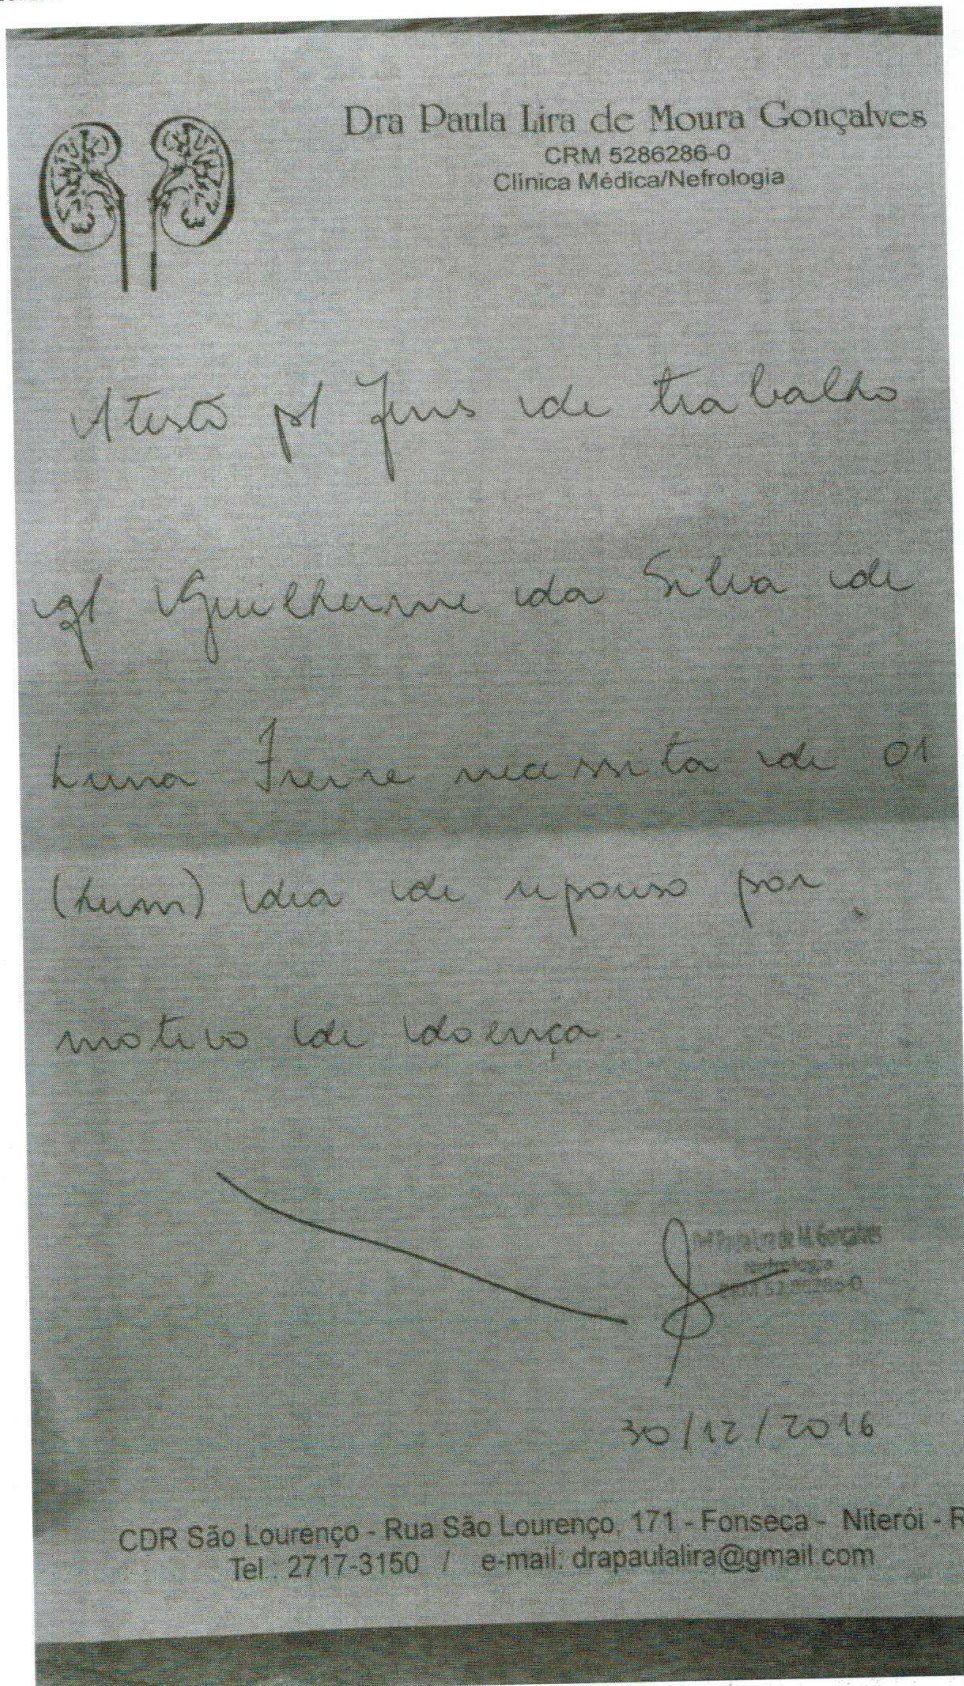 Dra Paula Lira de Moura Gonçalves
CRM 5286286-0
Clínica Médica/Nefrologia
Atesto p/ fins de trabalho
q/ Guilherme da Silva de
Luna Freire necessita de 01
(hum) dia de repouso por
motivo de doença.
Nefrologia
30/12/2016
CDR São Lourenço - Rua São Lourenço, 171 - Fonseca - Niterói - R
Tel.: 2717-3150 / e-mail: drapaulalira@gmail.com